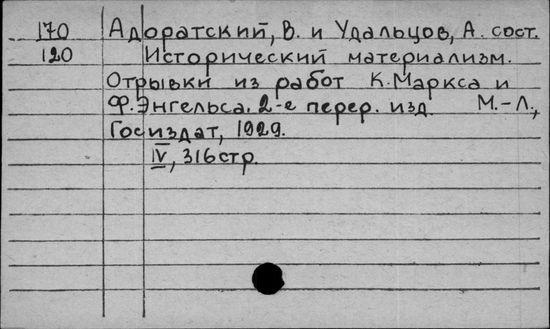 170 Адоратский, В. и Удальцов, А. сост.
120 Исторический материализм.
Отрывки из работ К. Маркса и
Ф. Энгельса. 2-е перер. изд. М.-Л.,
Госиздат, 1929.
IV, 316 стр.